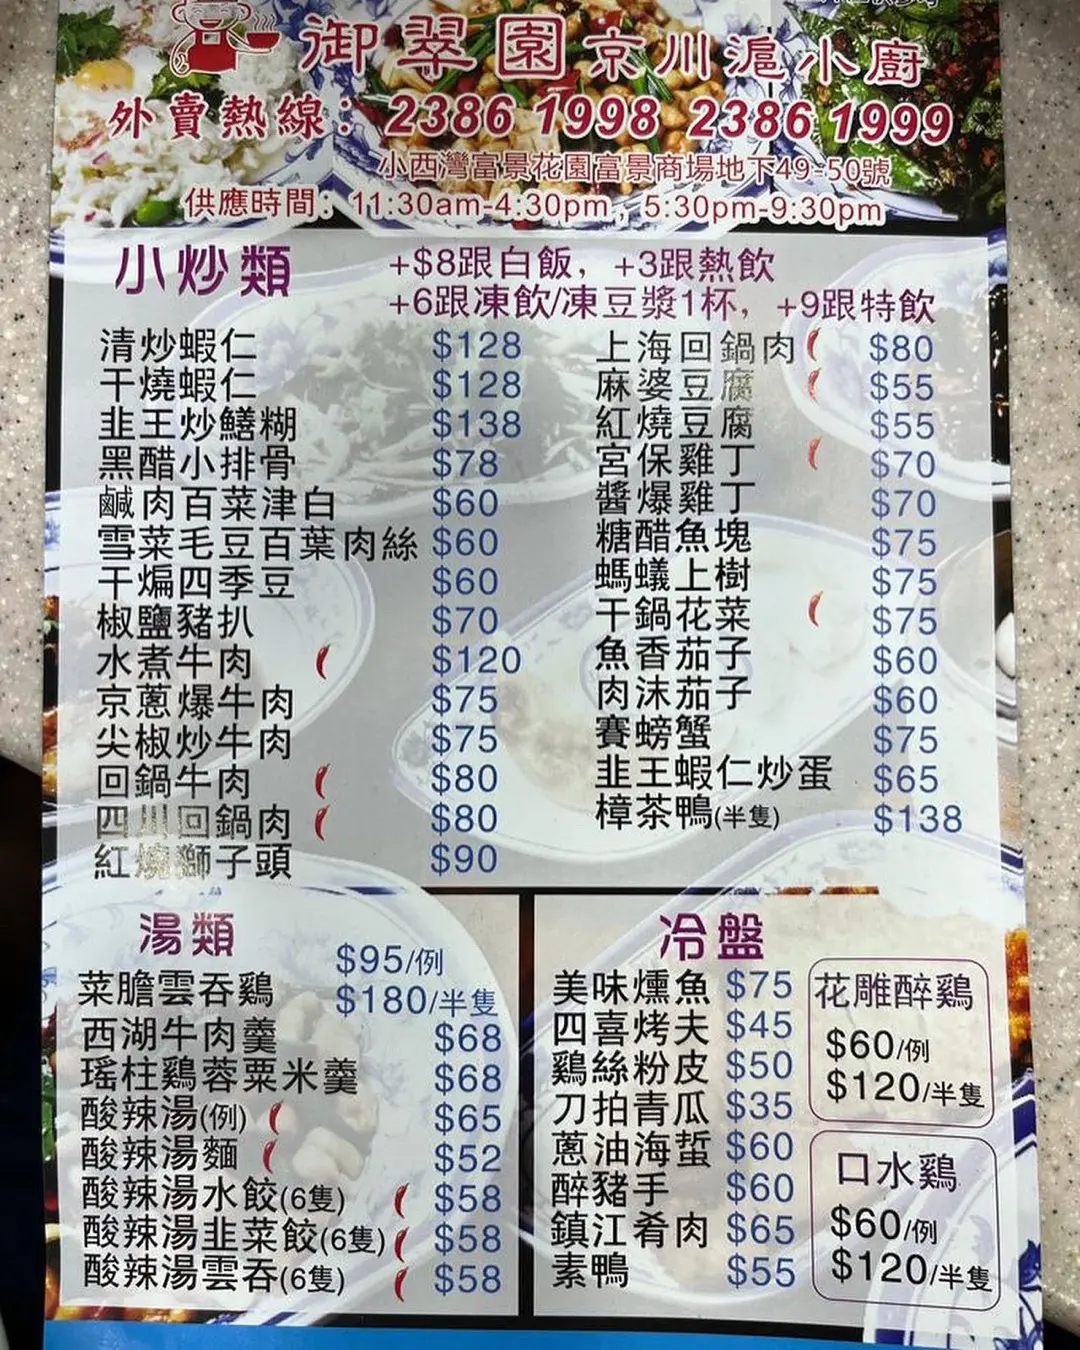 御翠園京川滬小廚
外賣熱線：2386 1998 2386 1999
小西灣富景花園富景商場地下49-50號
供應時間：11:30am-4:30pm，5:30pm-9:30pm
小炒類
+$8跟白飯，+3跟熱飲
+6跟凍飲/凍豆漿1杯，+9跟特飲
清炒蝦仁 $128
干燒蝦仁 $128
韭王炒鱔糊 $138
黑醋小排骨 $78
鹹肉百菜津白 $60
雪菜毛豆百葉肉絲 $60
干煸四季豆 $60
椒鹽豬扒 $70
水煮牛肉 $120
京蔥爆牛肉 $75
尖椒炒牛肉 $75
回鍋牛肉 $80
四川回鍋肉 $80
紅燒獅子頭 $90
上海回鍋肉 $80
麻婆豆腐 $55
紅燒豆腐 $55
宮保雞丁 $70
醬爆雞丁 $70
糖醋魚塊 $75
螞蟻上樹 $75
干鍋花菜 $75
魚香茄子 $60
肉沫茄子 $60
賽螃蟹 $75
韭王蝦仁炒蛋 $65
樟茶鴨(半隻) $138
湯類
菜膽雲吞鷄 $95/例
$180/半隻
西湖牛肉羹 $68
瑤柱鷄蓉粟米羹 $68
酸辣湯(例) $65
酸辣湯麵 $52
酸辣湯水餃(6隻) $58
酸辣湯韭菜餃(6隻) $58
酸辣湯雲吞(6隻) $58
冷盤
美味燻魚 $75
四喜烤夫 $45
鷄絲粉皮 $50
刀拍青瓜 $35
蔥油海蜇 $60
醉豬手 $60
鎮江肴肉 $65
素鴨 $55
花雕醉鷄
$60/例
$120/半隻
口水鷄
$60/例
$120/半隻